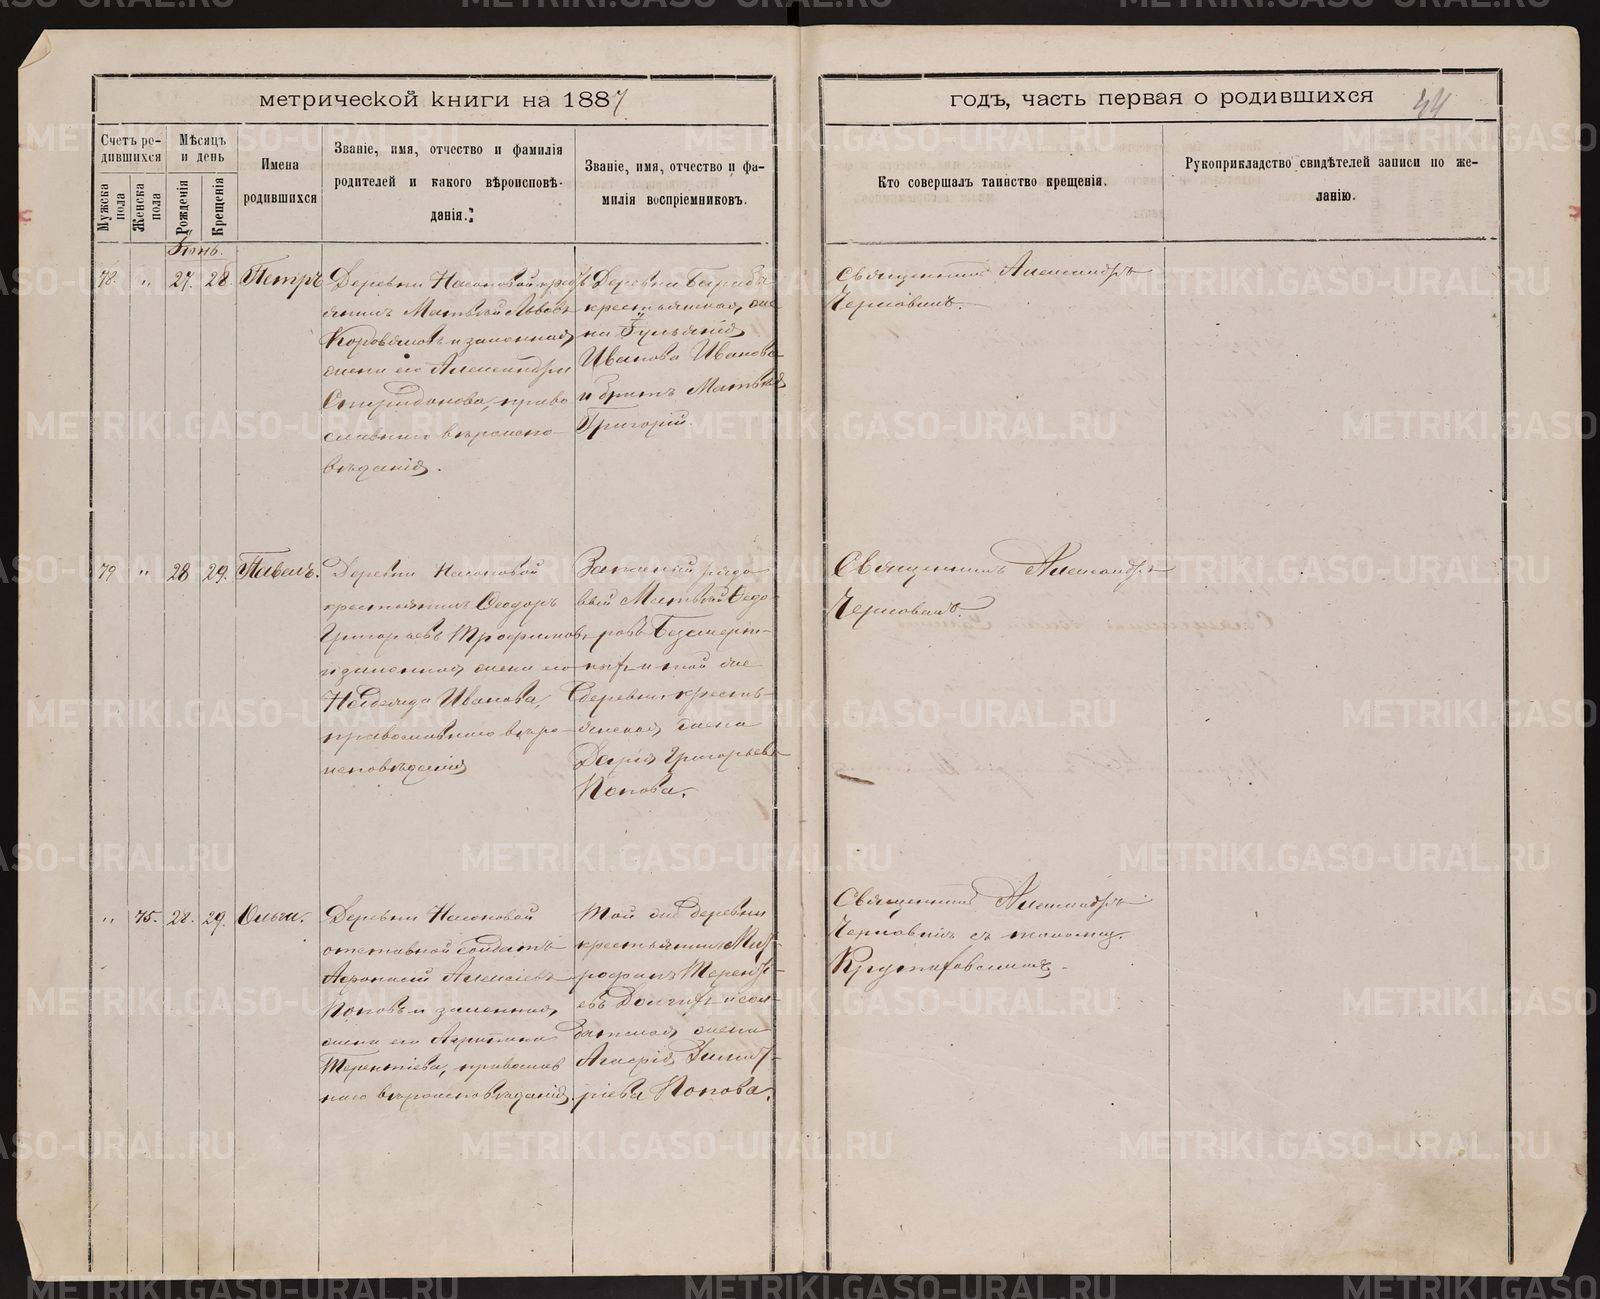 метрической книги на 1887
годъ, часть первая о родившихся
44
Счетъ ро-
дившихся
Мужска пола
Женска пола
Мѣсяцъ
и день
Рожденія
Крещенія
Имена
родившихся
Званіе, имя, отчество и фамилія
родителей и какого вѣроисповѣ-
данія.
Званіе, имя, отчество и фа-
милія воспріемниковъ.
Кто совершалъ таинство крещенія.
Рукоприкладство свидѣтелей записи по же-
ланію.
Іюнь.
78. " 27. 28. Петръ
Деревни Насоновой крест
янинъ Матвѣй Львовъ
Коровяковъ и законная
жена его Александра
Спиридонова, право
славнаго вѣроиспо-
вѣданія.
Деревни
крестьянская, же
на Іульянія
Иванова Иванова
и братъ Матвѣя
Григорій.
Священникъ Александръ
Черновинъ.
79 " 28 29. Павелъ.
Деревни Насоновой
крестьянинъ Ѳеодоръ
Григорьевъ Трофимовъ
и законная жена его
Надежда Иванова,
православнаго вѣро-
исповѣданія
Запасный рядо
вый Матвѣй Ѳедо-
ровъ Безсмерт-
ныхъ и той же
деревни, кресть-
янская жена
Дарія Григорьева
Попова.
Священникъ Александръ
Черновинъ.
" 75. 28. 29. Ольга.
Деревни Насоновой
отставной солдатъ
Аѳонасій Алексѣевъ
Поповъ и законная,
жена его Агрипина
Терентіева, православ
наго вѣроисповѣданія.
Той же деревни
крестьянинъ Мит-
рофанъ Терентi-
евъ Долгихъ и сол-
датская жена
Агаѳія Димит-
ріева Попова.
Священникъ Александръ
Черновинъ съ
METRIKI.GASO-URAL.RU